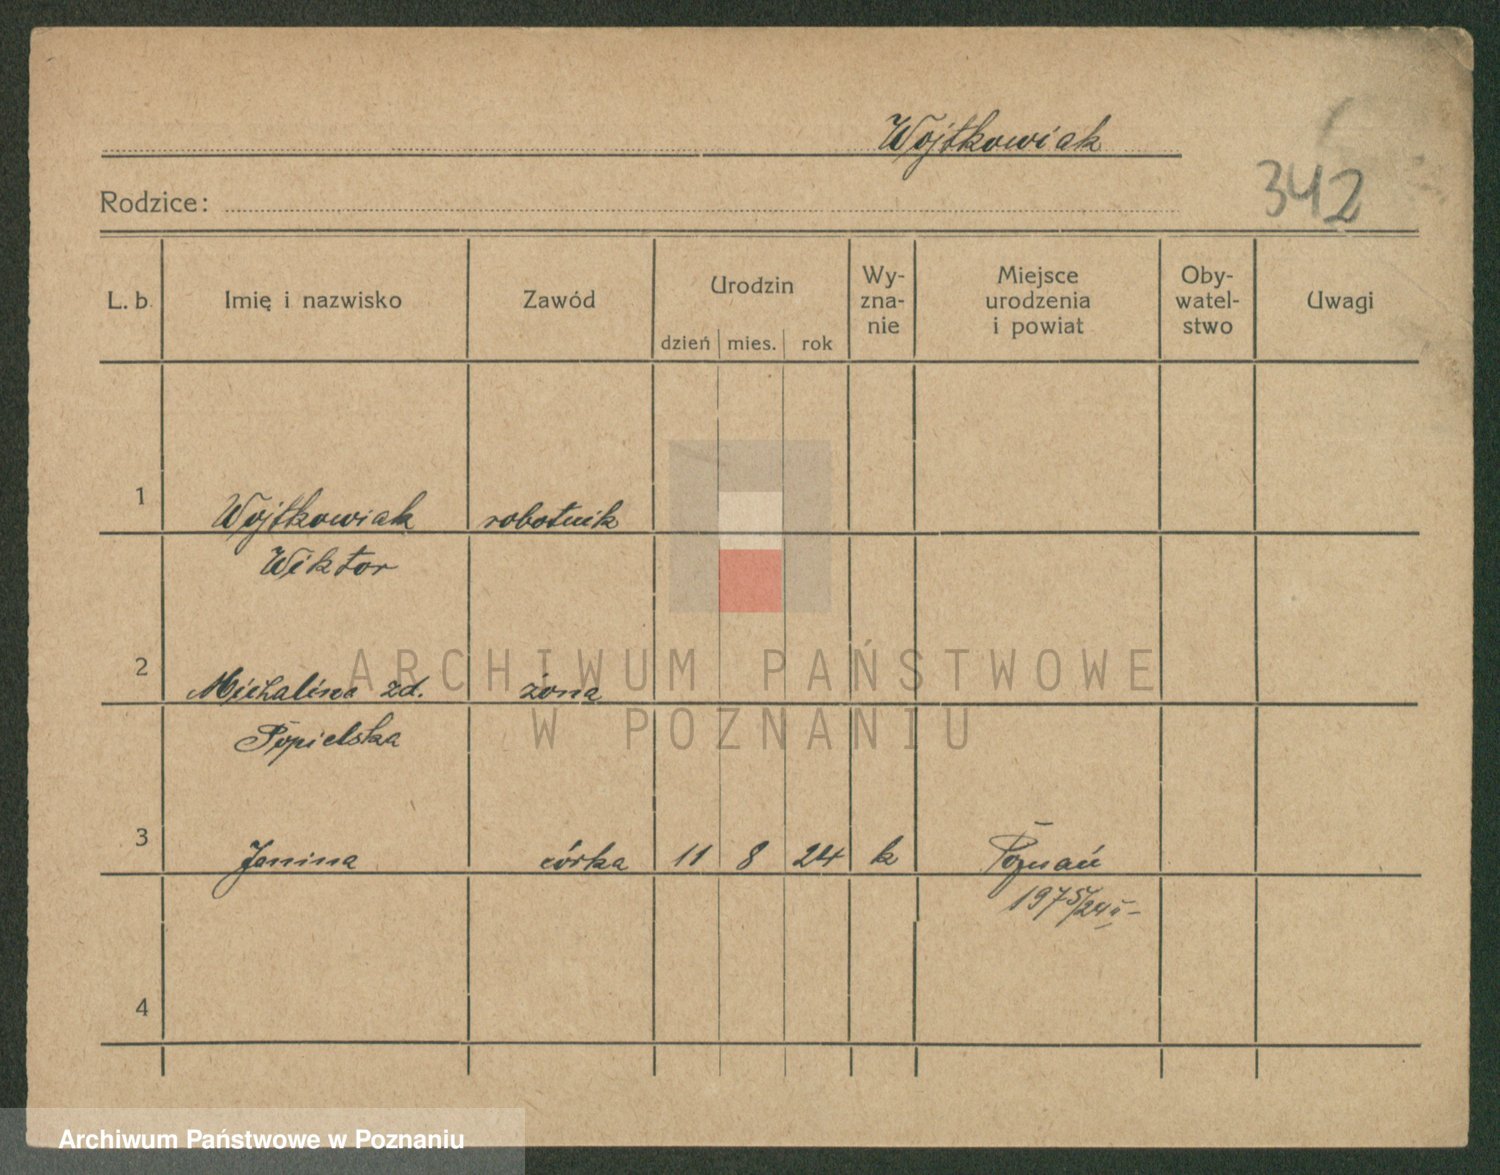 Wojtkowiak
342
Rodzice:
L. b. Imię i nazwisko Zawód Urodzin Wy-
zna-
nie Miejsce
urodzenia
i powiat Oby-
watel-
stwo Uwagi
dzień mies. rok
1 Wojtkowiak robotnik
Wiktor
2 Michalina zd. żona
Popielska
3 Janina córka 11 8 24 k Poznań
1975/24 II
4
ARCHIWUM PAŃSTWOWE
W POZNANIU
Archiwum Państwowe w Poznaniu